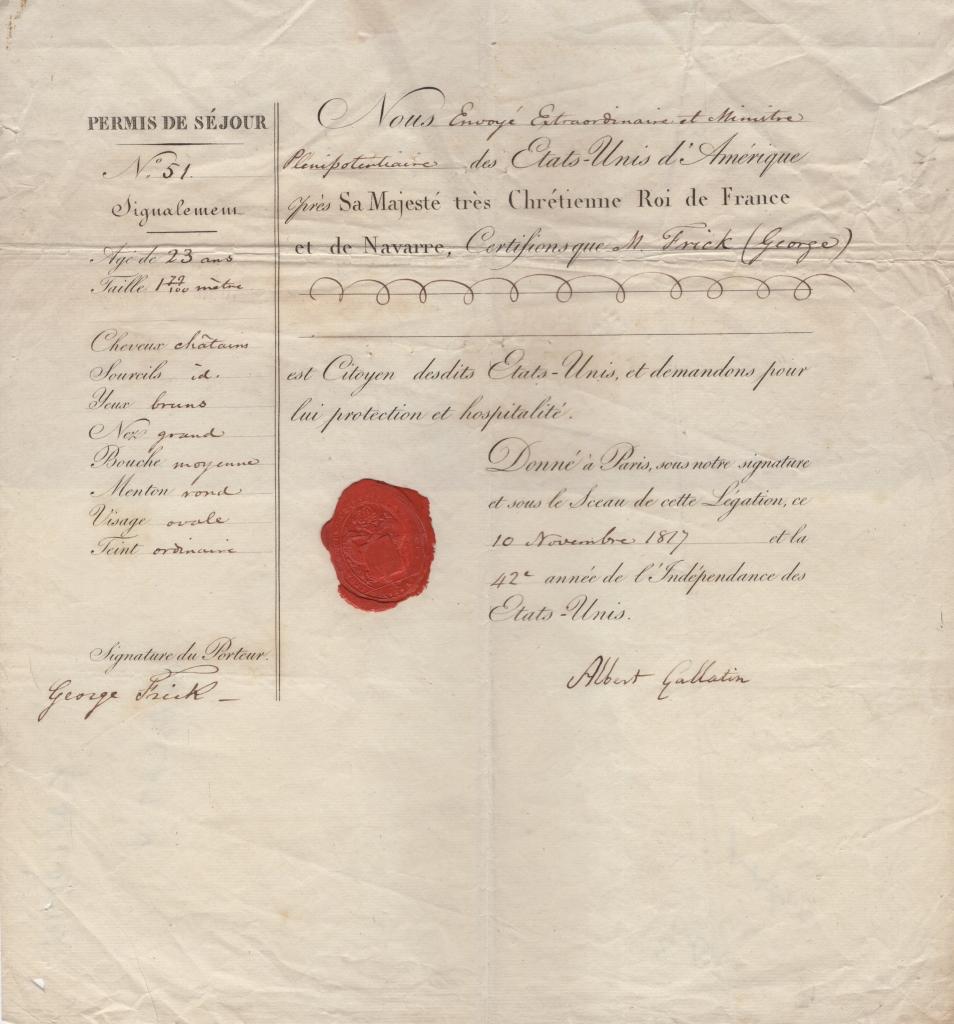 PERMIS DE SÉJOUR
N.º 51.
Signalement
Agé de 23 ans
Taille 1 72/100 mètre
Cheveux châtains
Sourcils id.
Yeux bruns
Nez grand
Bouche moyenne
Menton rond
Visage ovale
Teint ordinaire
Signature du Porteur.
George Frick
Nous Envoyé Extraordinaire et Ministre
Plenipotentiaire des Etats-Unis d'Amérique
près Sa Majesté très Chrétienne Roi de France
et de Navarre, Certifions que M. Frick (George)
est Citoyen desdits Etats-Unis, et demandons pour
lui protection et hospitalité.
Donné à Paris, sous notre signature
et sous le Sceau de cette Légation, ce
10 Novembre 1817 et la
42e année de l'Indépendance des
Etats-Unis.
Albert Gallatin